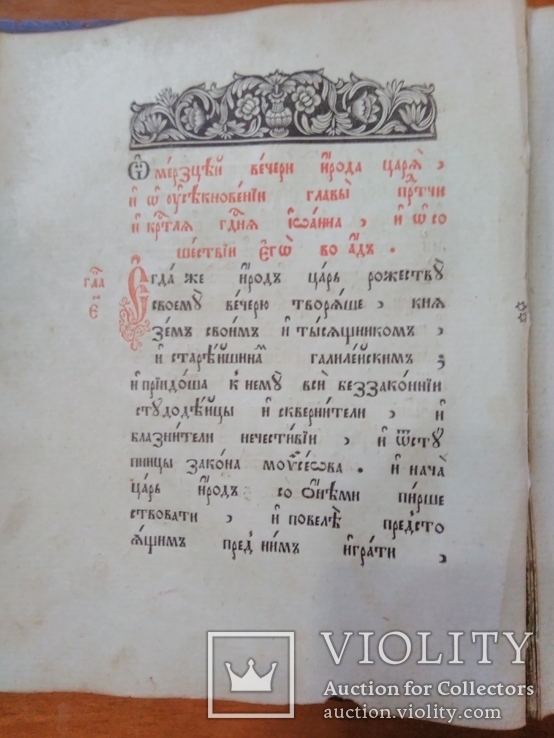 Ѽ мерзцѣй вечери и҆́рода царѧ̀ ,
и҆ ѡ҆ ᲂу҆сѣкновенїи главы̀ прⷣтчи
и҆ крⷭ҇тлѧ гдⷭ҇нѧ і҆ѡа́нна , и҆ ѡ҆ со
шествїи є҆гѡ̀ во а҆́дъ .
гла҃
є҃
Є҆гда́ же и҆́родъ царь рожествꙋ̀
своемꙋ̀ вечерю творѧ́ше , кнѧ
зе́мъ свои́мъ и҆ ты́сѧщникомъ ,
и҆ старѣ́йшинаⷨ галиле́йскимъ ;
и҆ прїидо́ша к немꙋ̀ всѝ беззако́ннїи
стꙋдодѣ́йцы и҆ скверни́тели , и҆
блазни́тели нечести́вїи , и҆ ѿстꙋ
пницы зако́на моѵсе́ѡва . и҆ нача̀
царь и҆́родъ со ѻ҆нѣ́ми пи́рше
ствовати , и҆ повелѣ̀ предсто
ѧ́щимъ пред ни́мъ и҆гра́ти ,
VIOLITY
Auction for Collectors
auction.violity.com